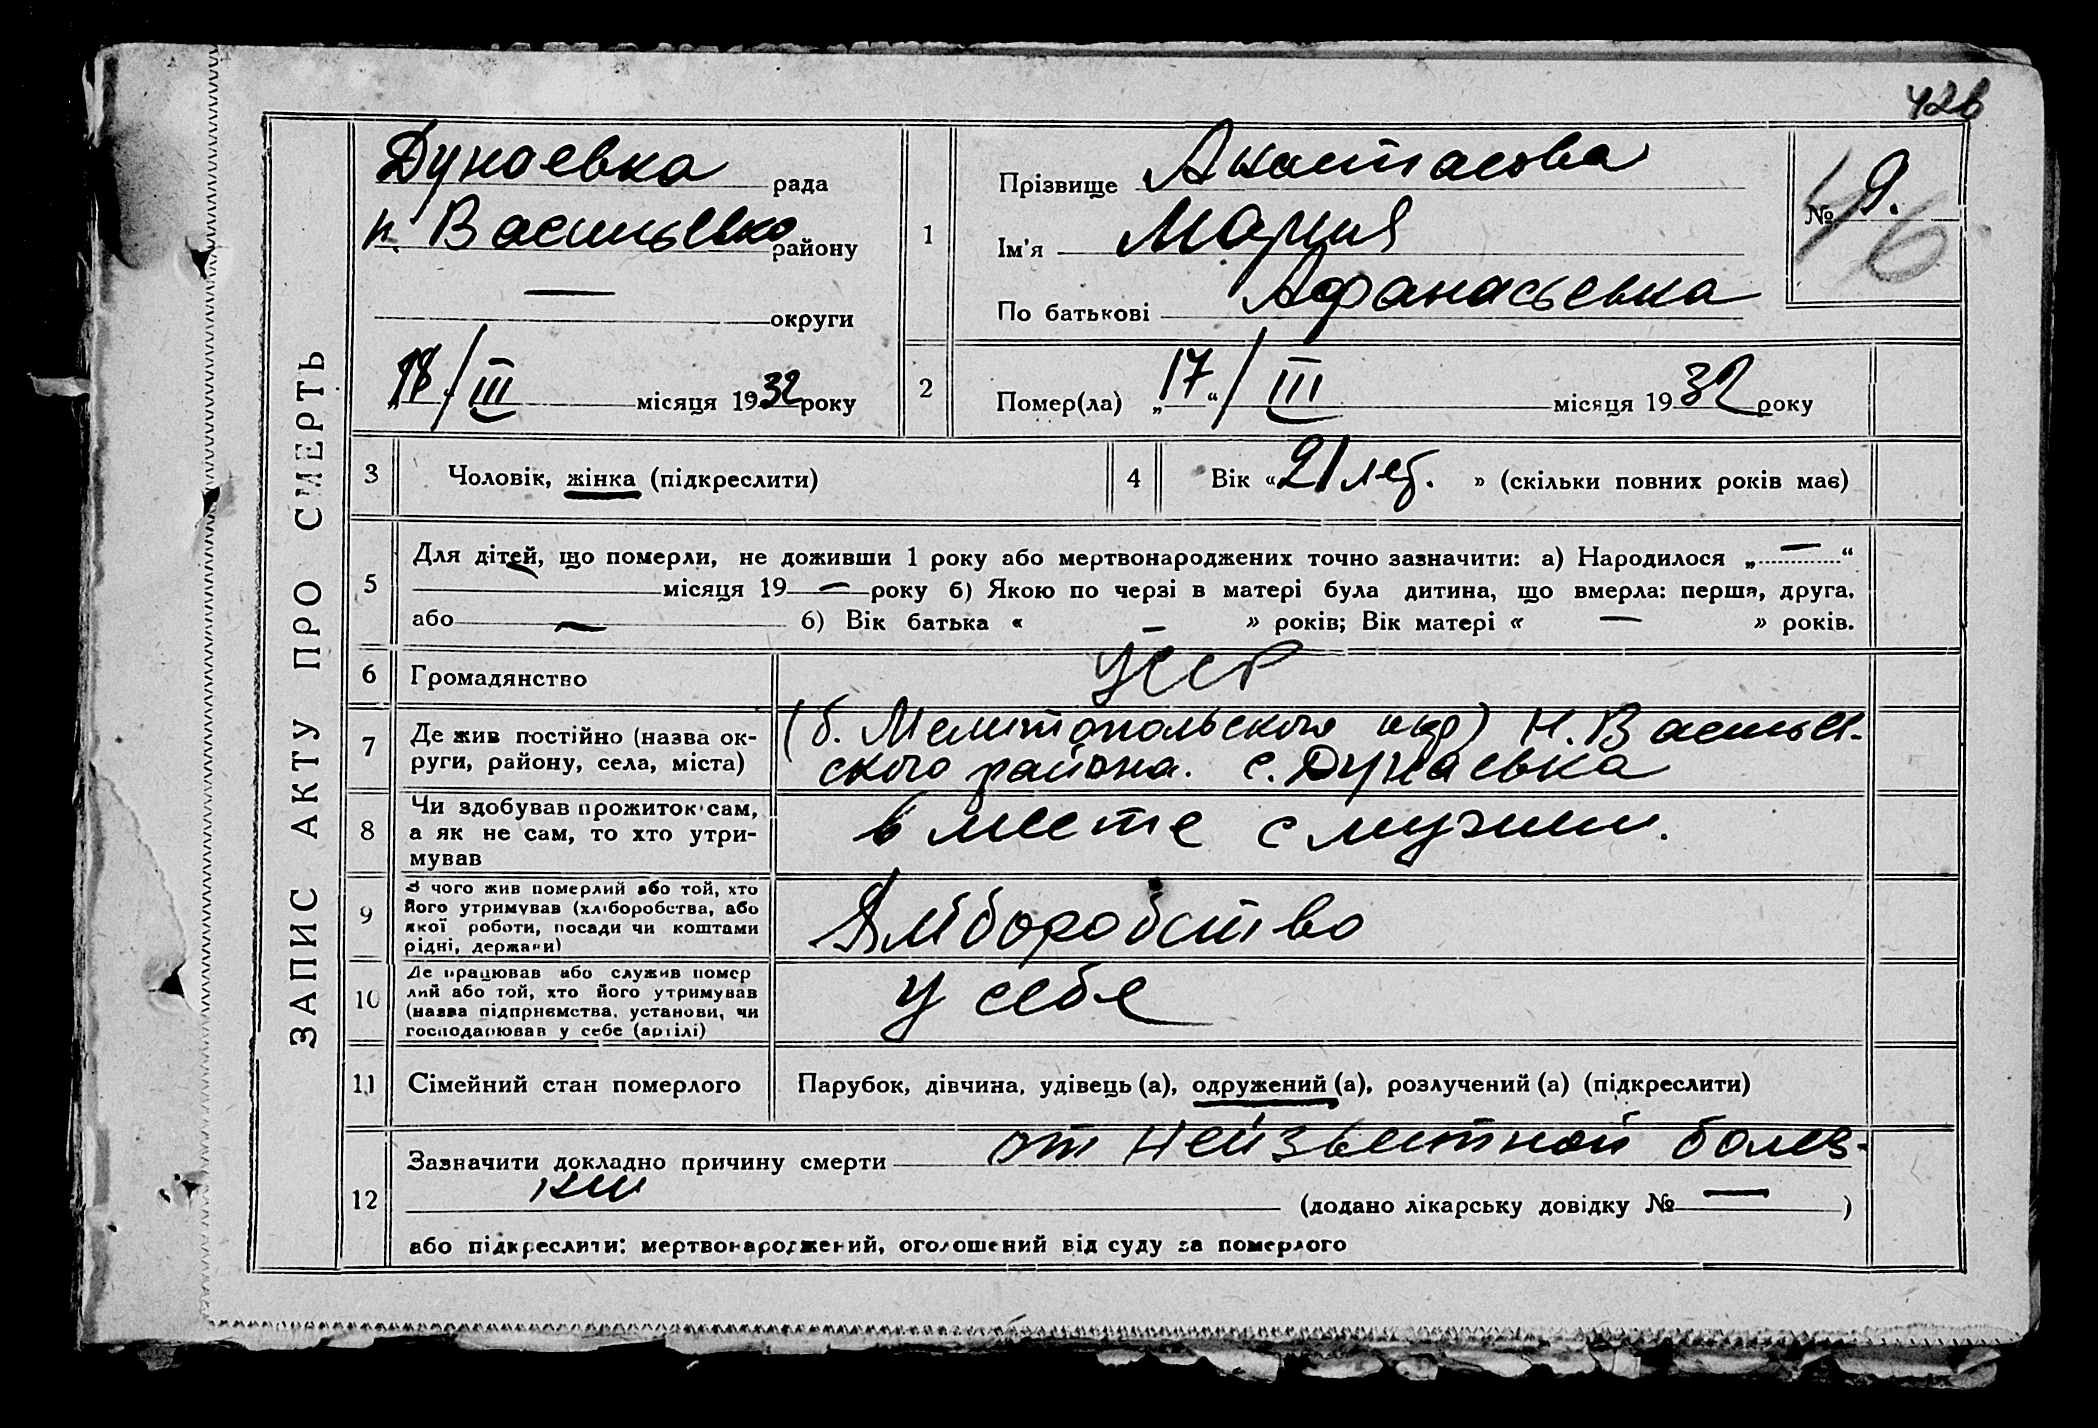 426
ЗАПИС АКТУ ПРО СМЕРТЬ
Дунаевка рада
н. Васильевка району
— округи
„18/III місяця 1932 року
1
Прізвище Анастасова
Ім'я Мария
По батькові Афанасьевна
№ 9.
46
2
Помер(ла) „17“/III місяця 1932 року
3 Чоловік, жінка (підкреслити)
4 Вік «21 лет. » (скільки повних років має)
5
Для дітей, що померли, не доживши 1 року або мертвонароджених точно зазначити: а) Народилося „—“
місяця 19—року б) Якою по черзі в матері була дитина, що вмерла: перша, друга,
або — б) Вік батька « — » років; Вік матері « — » років.
6 Громадянство УССР
7 Де жив постійно (назва ок-
руги, району, села, міста)
(б. Мелитопольского окр) Н. Василье-
ского района. с. Дунаевка
8 Чи здобував прожиток сам,
а як не сам, то хто утри-
мував
в месте с мужем.
9 З чого жив померлий або той, хто
його утримував (хліборобства, або
якої роботи, посади чи коштами
рідні, держави)
Хліборобство
10 Де працював або служив помер
лий або той, хто його утримував
(назва підприємства, установи, чи
господарював у себе (артілі)
у себе
11 Сімейний стан померлого Парубок, дівчина, удівець (а), одружений (а), розлучений (а) (підкреслити)
12
Зазначити докладно причину смерти от неизвестной болез-
ни (додано лікарську довідку № — )
або підкреслити: мертвонароджений, оголошений від суду за померлого